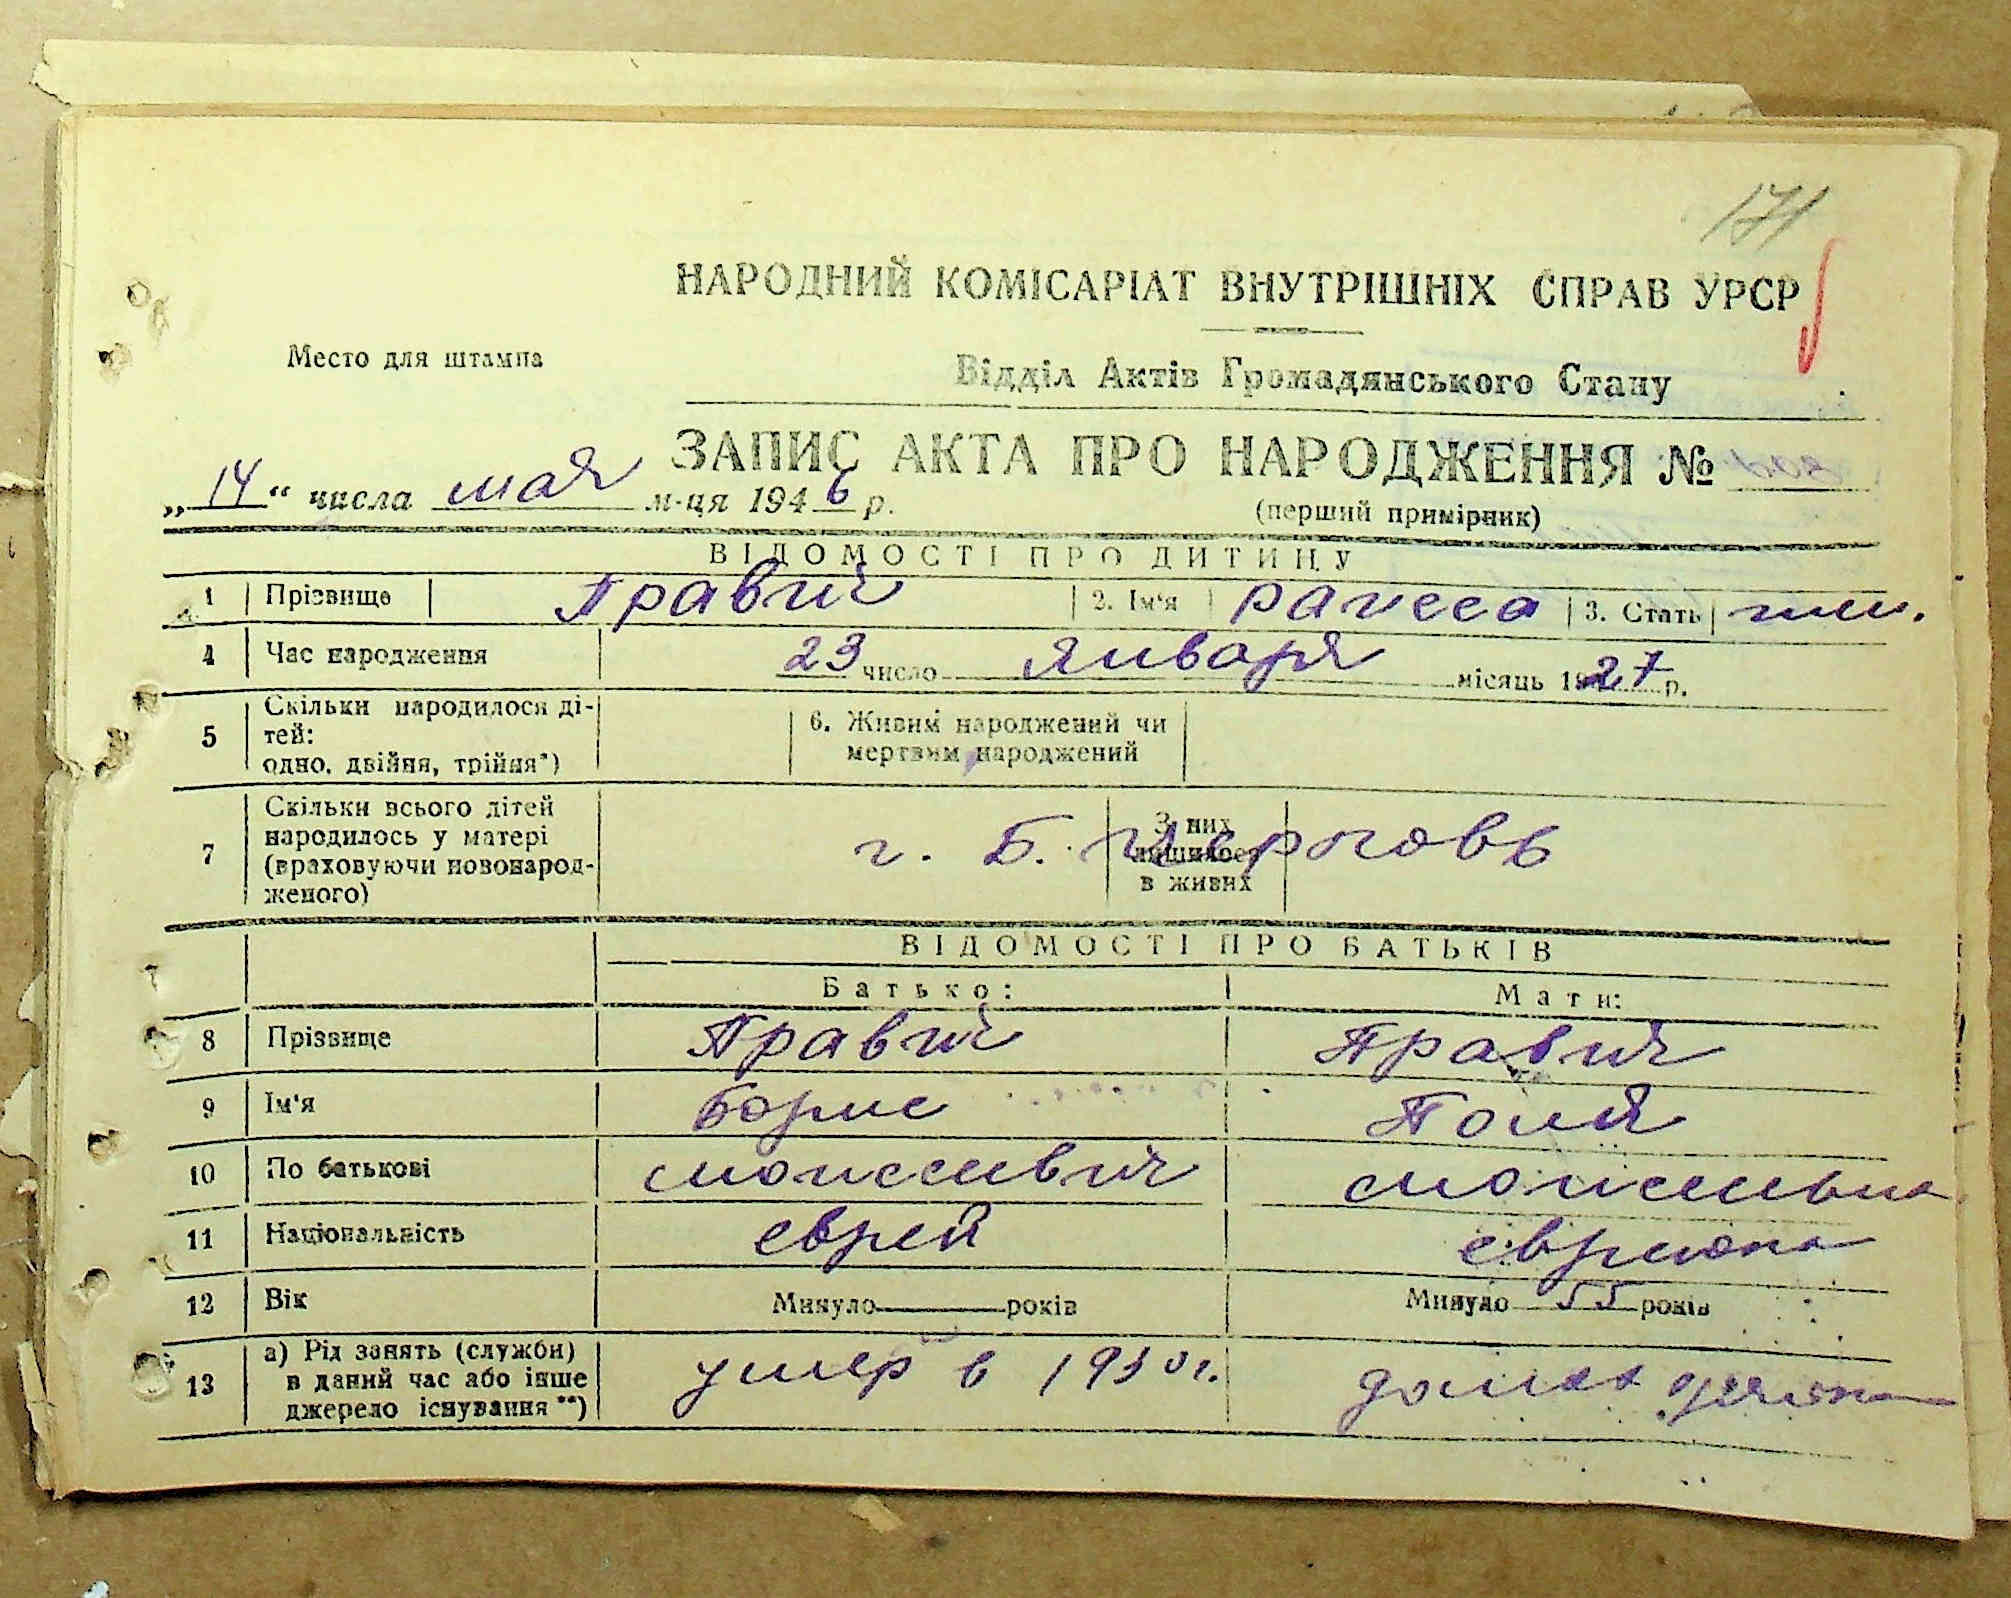 171
НАРОДНИЙ КОМІСАРІАТ ВНУТРІШНІХ СПРАВ УРСР
Место для штампа
Відділ Актів Громадянського Стану
ЗАПИС АКТА ПРО НАРОДЖЕННЯ №
„14“ числа мая м-ця 1946 р.
(перший примірник)
ВІДОМОСТІ ПРО ДИТИНУ
1 Прізвище Правич 2. Ім'я Раисса 3. Стать жен.
4 Час народження 23 число Января місяць 1927 р.
5 Скільки народилося ді-
тей:
одно, двійня, трійня*)
6. Живим народжений чи
мертвим народжений
7 Скільки всього дітей
народилось у матері
(враховуючи новонарод-
женого)
г. Б. Церковь
З них
лишилось
в живих
ВІДОМОСТІ ПРО БАТЬКІВ
Батько: Мати:
8 Прізвище Правич Правич
9 Ім'я Борис Поля
10 По батькові Моисеевич Моисеевна
11 Національність еврей еврейка
12 Вік Минуло років Минуло 55 років
13 а) Рід занять (служби)
в даний час або інше
джерело існування **)
умер в 1930 г. домох